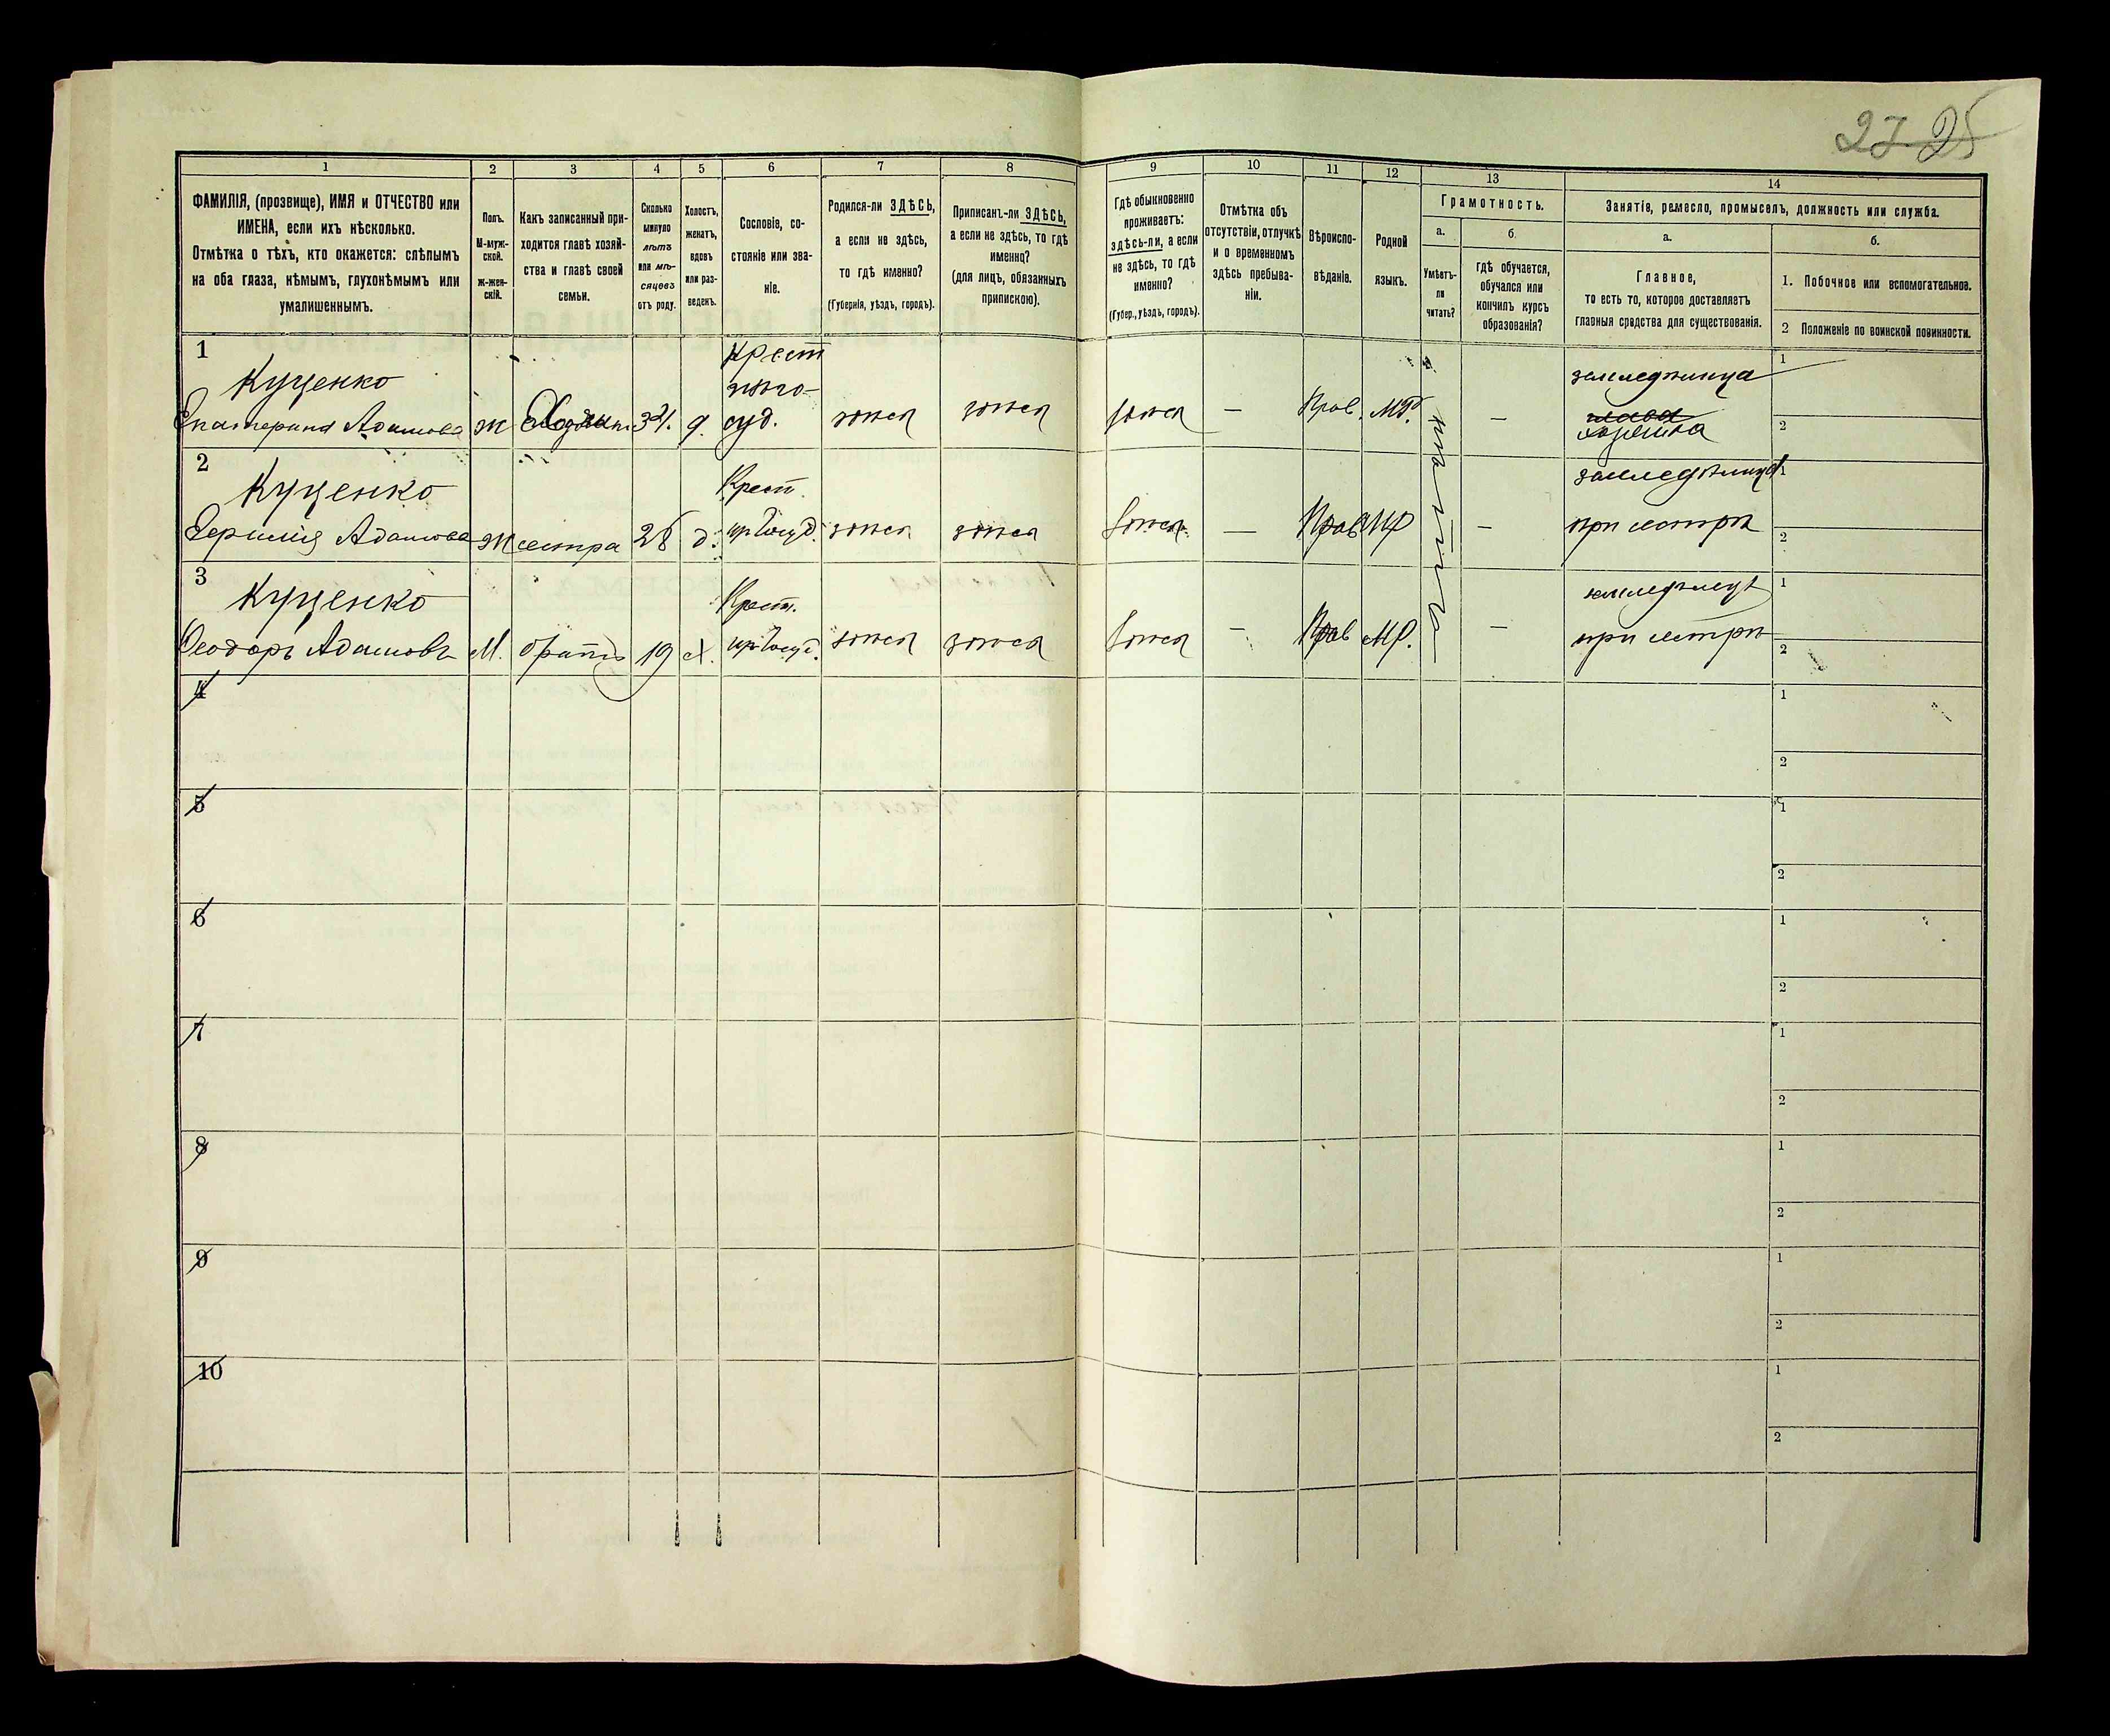 27 25
1 2 3 4 5 6 7 8 9 10 11 12 13 14
ФАМИЛІЯ, (прозвище), ИМЯ и ОТЧЕСТВО или
ИМЕНА, если ихъ нѣсколько.
Отмѣтка о тѣхъ, кто окажется: слѣпымъ
на оба глаза, нѣмымъ, глухонѣмымъ или
умалишеннымъ.
Полъ.
М-муж-
ской.
ж-жен-
скій.
Какъ записанный при-
ходится главѣ хозяй-
ства и главѣ своей
семьи.
Сколько
минуло
лѣтъ
или мѣ-
сяцевъ
отъ роду.
Холостъ,
женатъ,
вдовъ
или раз-
веденъ.
Сословіе, со-
стояніе или зва-
ніе.
Родился-ли ЗДѢСЬ,
а если не здѣсь,
то гдѣ именно?
(Губернія, уѣздъ, городъ).
Приписанъ-ли ЗДѢСЬ,
а если не здѣсь, то гдѣ
именно?
(для лицъ, обязанныхъ
припискою).
Гдѣ обыкновенно
проживаетъ:
здѣсь-ли, а если
не здѣсь, то гдѣ
именно?
(Губер., уѣздъ, городъ).
Отмѣтка объ
отсутствіи, отлучкѣ
и о временномъ
здѣсь пребыва-
ніи.
Вѣроиспо-
вѣданіе.
Родной
языкъ.
Грамотность.
а.
Умѣетъ-
ли
читать?
б.
гдѣ обучается,
обучался или
кончилъ курсъ
образованія?
Занятіе, ремесло, промыселъ, должность или служба.
а.
Главное,
то есть то, которое доставляетъ
главныя средства для существованія.
б.
1. Побочное или вспомогательное.
2 Положеніе по воинской повинности.
1
Куценко
Екатерина Адамова ж 34. д.
Крест
суд. здѣся здѣся здѣся — Прав. МР. —
земледѣлица
хозяйка
1
2
2
Куценко
Адамова ж сестра 28 д.
Крест.
здѣся здѣся здѣся — Прав МР —
земледѣлица
при сестрѣ
1
2
3
Куценко
Ѳеодоръ Адамовъ М. братъ 19 х.
Крест.
здѣся здѣся здѣся — Прав МР. —
земледѣлецъ
при сестрѣ
1
2
4
1
2
5
1
2
6
1
2
7
1
2
8
1
2
9
1
2
10
1
2